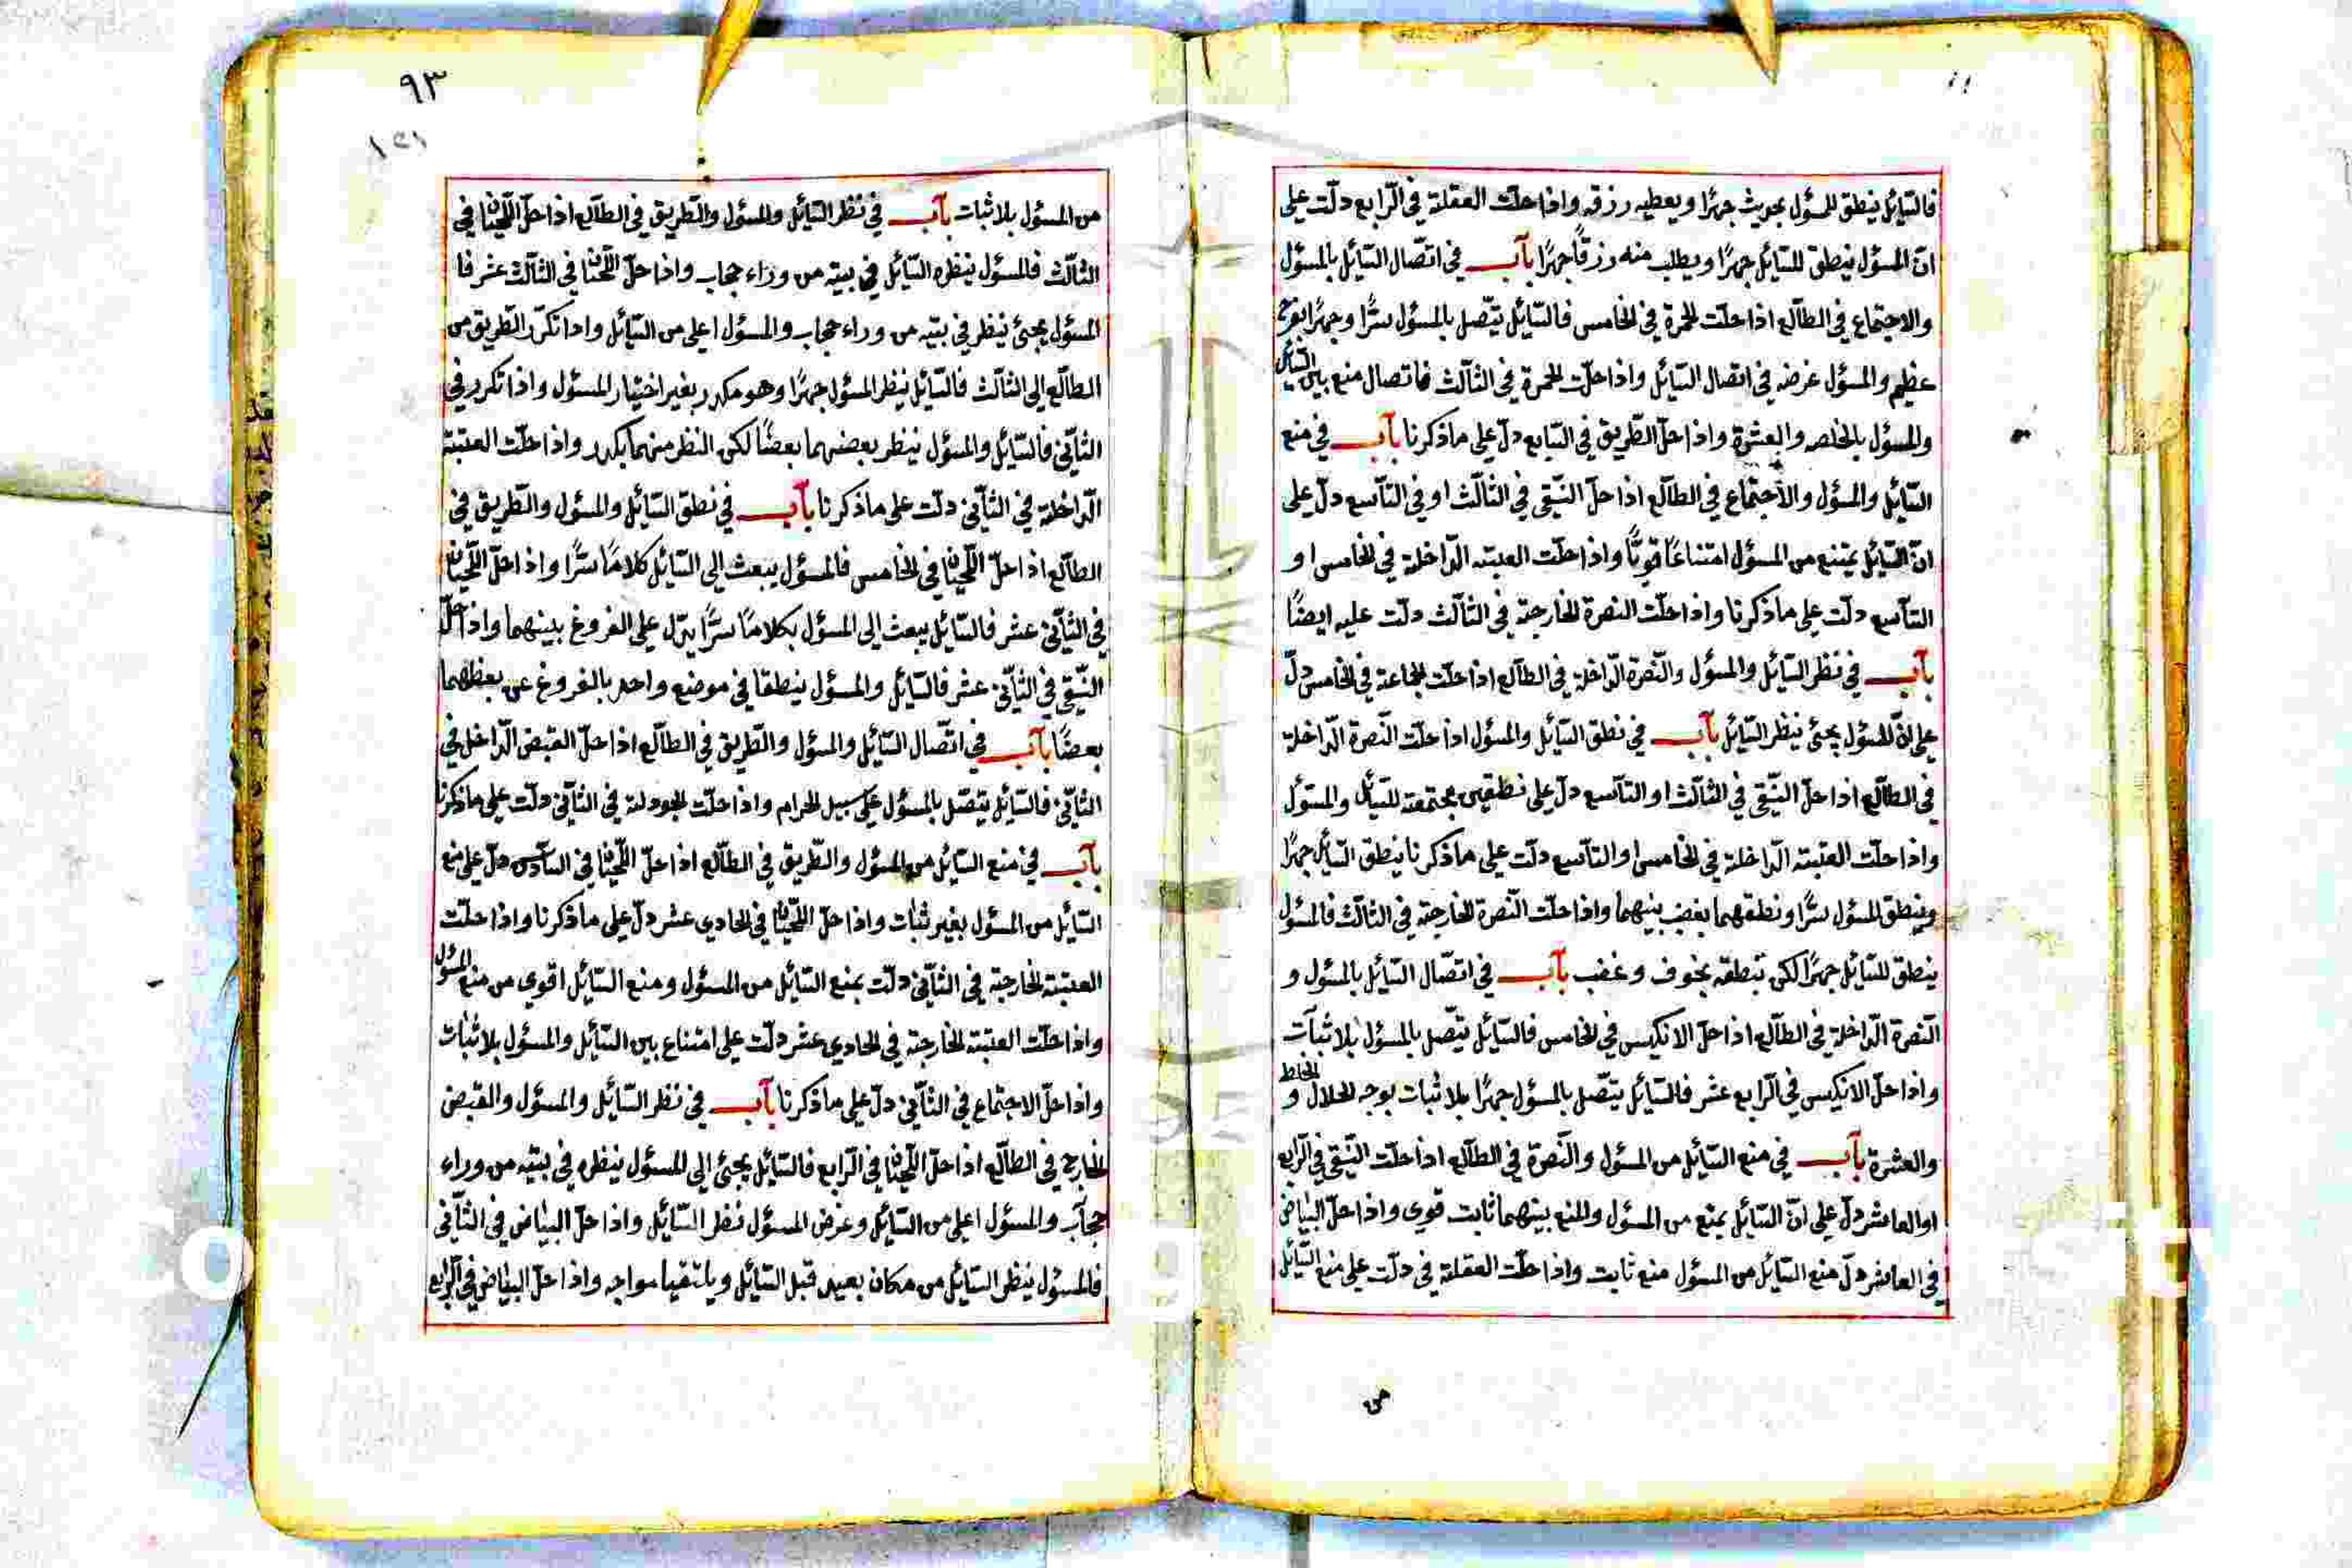 فالسّائل ينطق للمسؤل بحديث جهرًا ويعطيه رزقه واذا حلّت العقلة فى الرّابع دلّت على
انّ المسؤل ينطق للسّائل جهرًا ويطلب منه رزقًا جهرًا بآب فى اتّصال السّائل بالمسؤل
والاجتماع فى الطّالع اذا حلّت الحمرة فى الخامس فالسّائل يتّصل بالمسؤل سرًّا وجهرًا بفرح
عظيم والمسؤل غرضه فى اتصال السّائل واذا حلّت الحمرة فى الثّالث فاتصال منع بين السّائل
والمسؤل بالخلصه والعشرة واذا حلّ الطّريق فى السّابع دلّ على ما ذكرنا بآب فى منع
السّائل والمسؤل والاجتماع فى الطّالع اذا حلّ النّقى فى الثّالث او فى التّاسع دلّ على
انّ السّائل يمتنع من المسؤل امتناعًا قويًّا واذا حلّت العتبته الدّاخلة فى الخامس او
التّاسع دلّت على ما ذكرنا واذا حلّت النصرة الخارجة فى الثّالث دلّت عليه ايضًا
بآب فى نظر السّائل والمسؤل والنّصرة الدّاخلة فى الطّالع اذا حلّت الجماعة فى الخامس دلّ
على انّ المسؤل يجئ ينظر السّائل بآب فى نطق السّائل والمسؤل اذا حلّت النّصرة الدّاخلة
فى الطّالع اذا حلّ النّقى فى الثّالث او التّاسع دلّ على نطقين مجتمعة للسّائل والمسؤل
واذا حلّت العتبته الدّاخلة فى الخامس او التّاسع دلّت على ما ذكرنا ينطق السّائل جهرًا
وينطق المسؤل سرًّا ونطقهما بغضب بينهما واذا حلّت النّصرة الخارجة فى الثّالث فالمسؤل
ينطق للسّائل جهرًا لكن نطقه بخوف وغضب بآب فى اتصّال السّائل بالمسؤل و
النّصرة الدّاخلة فى الطّالع اذا حلّ الانكيس فى الخامس فالسّائل يتّصل بالمسؤل بلا ثبات
واذا حلّ الانكيس فى الرّابع عشر فالسّائل يتّصل بالمسؤل جهرًا بلا ثبات بوجه الحلال والخلط و
والعشرة بآب فى منع السّائل من المسؤل والنّصرة فى الطّالع اذا حلّت النّقى فى الرّابع
او العاشر دلّ على انّ السّائل يمنع من المسؤل والمنع بينهما ثابت قوى واذا حلّ البياض
فى العاشر دلّ منع السّائل من المسؤل منع ثابت واذا حلّت العقلة فى دلّت على منع السّائل
من
٩٣
١٢١
من المسؤل بلا ثبات بآب فى نظر السّائل والمسؤل والطّريق فى الطّالع اذا حلّ اللّحيان فى
الثّالث فالمسؤل ينظره السّائل فى بيته من وراء حجاب واذا حلّ اللّحيان فى الثّالث عشر فا
المسؤل يجئ ينظر فى بيته من وراء حجاب والمسؤل اعلى من السّائل واذا تكرّر الطّريق من
الطّالع الى الثّالث فالسّائل ينظر المسؤل جهرًا وهو مكدر بغير اختيار المسؤل واذا تكرر فى
الثّانى فالسّائل والمسؤل ينظر بعضهما بعضًا لكن النظر منهما بكدر واذا حلّت العتبته
الدّاخلة فى الثّانى دلّت على ما ذكرنا بآب فى نطق السّائل والمسؤل والطّريق فى
الطّالع اذا حلّ اللّحيان فى الخامس فالمسؤل يبعث الى السّائل كلامًا سرًّا واذا حلّ اللّحيان
فى الثّانى عشر فالسّائل يبعث الى المسؤل بكلامًا سرًّا يدّل على الفروغ بينهما واذا حلّ
النّقى فى الثّانى عشر فالسّائل والمسؤل ينطقا فى موضع واحد بالفروغ عن بعظهما
بعضًا بآب فى اتّصال السّائل والمسؤل والطّريق فى الطّالع اذا حلّ القبض الدّاخل فى
الثّانى فالسّائل يتصّل بالمسؤل على سبيل الحرام واذا حلّت الجودلة فى الثّانى دلّت على ما ذكرنا
بآب فى منع السّائل من المسؤل والطّريق فى الطّالع اذا حلّ اللّحيان فى السّادس دلّ على منع
السّائل من المسؤل بغير ثبات واذا حلّ اللّحيان فى الحادى عشر دلّ على ما ذكرنا واذا حلّت
العتبته الخارجة فى الثّانى دلّت بمنع السّائل من المسؤل ومنع السّائل اقوى من منع المسؤل
واذا حلّت العتبته الخارجة فى الحادى عشر دلّت على امتناع بين السّائل والمسؤل بلا ثبات
واذا حلّ الاجتماع فى الثّانى دلّ على ما ذكرنا بآب فى نظر السّائل والمسؤل والقبض
الخارج فى الطّالع اذا حلّ اللّحيان فى الرّابع فالسّائل يجئ الى المسؤل ينظره فى بيته من وراء
حجاب والمسؤل اعلى من السّائل وغرض المسؤل نظر السّائل واذا حلّ البياض فى الثّانى
فالمسؤل ينظر السّائل من مكان بعيد قبل السّائل ويلتقيا مواجه واذا حلّ البياض فى الرّابع